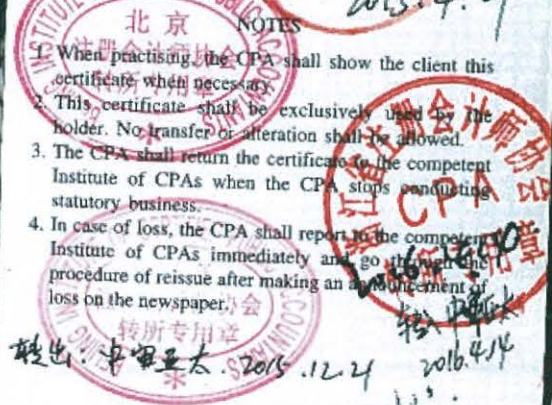 2015.4.21
NOTES
1. When practising, the CPA shall show the client this
certificate when necessary.
2. This certificate shall be exclusively used by the
holder. No transfer or alteration shall be allowed.
3. The CPA shall return the certificate to the competent
Institute of CPAs when the CPA stops conducting
statutory business.
4. In case of loss, the CPA shall report to the competent
Institute of CPAs immediately and go through the
procedure of reissue after making an announcement of
loss on the newspaper.
北京
注册会计师协会
江省注册会计师协会
CPA
转所专用章
转出:中审亚太. 2015.12.21
转入 中审亚太
2016.4.14